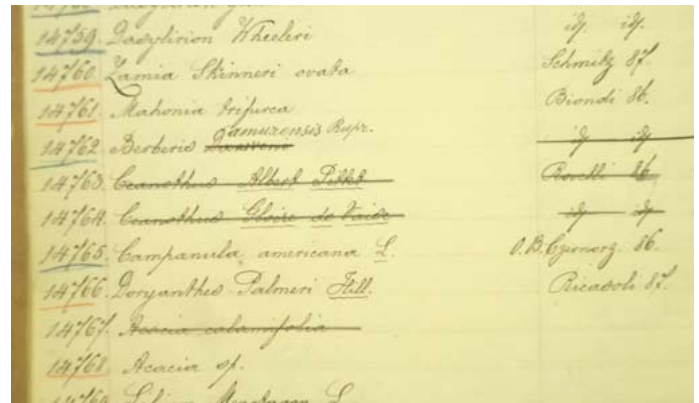 14759. Dasylirion Wheeleri id. id.
14760. Zamia Skinneri ovata Schmitz 87.
14761. Mahonia trifurca Biondi 86.
amurensis Rupr.
14762 Berberis id id
14763. Ceanothus Albert Pittet Rovelli 86.
14764. Ceanothus Gloire de id id
14765. Campanula americana L. O. B. 86.
14766. Doryanthes Palmeri Hill. Ricasoli 87.
14767. Acacia calamifolia
14768 Acacia sp.